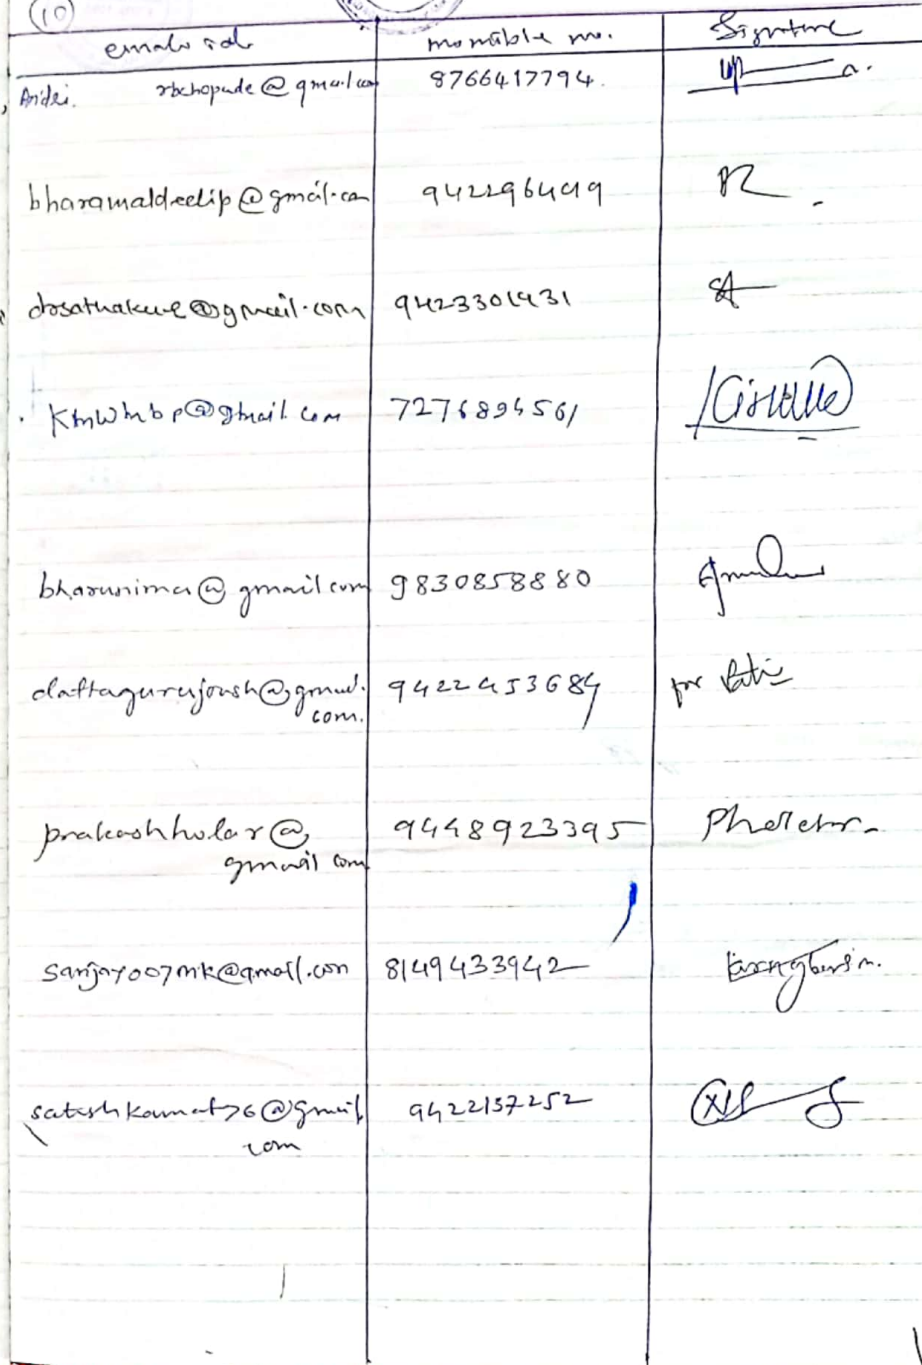 10
emails ids momible no. Signture
Andei. rbchopude@gmail.com 8766417794.
bharamaldeelip@gmail.com 9422964419
dosathakure@gmail.com 9423301431
kmwmbp@gmail.com 7276894561
bharunima@gmail com 9830858880
dattagurujoush@gmail. 9422453684
com.
prakashholar@ 9448923395
gmail com
sanjay007mk@gmail.com 8149433942
satishkamat76@gmail 9422137252
com